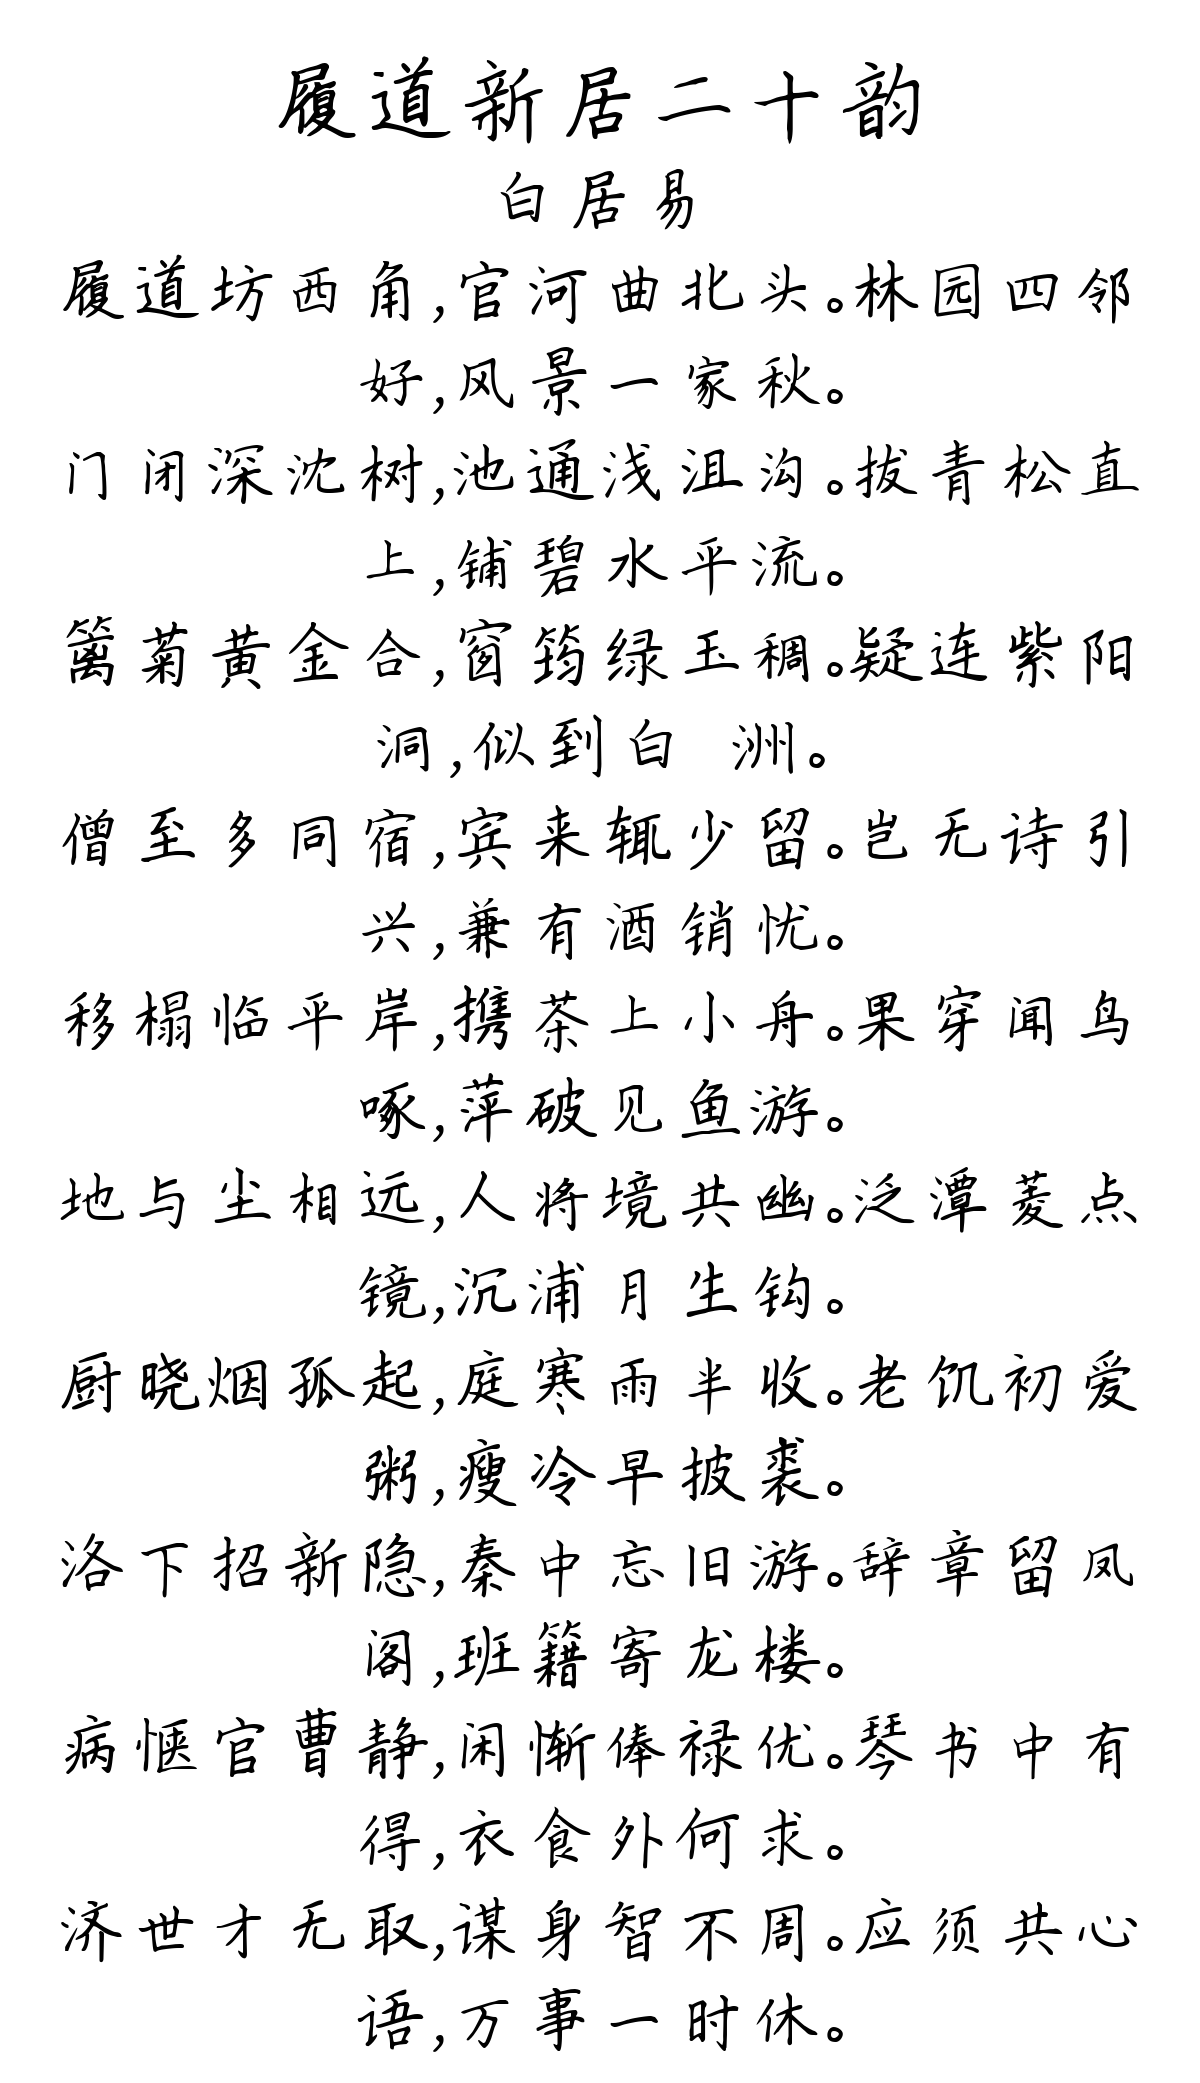 履道新居二十韵
白居易
履道坊西角,官河曲北头。林园四邻
好,风景一家秋。
门闭深沈树,池通浅沮沟。拔青松直
上,铺碧水平流。
篱菊黄金合,窗筠绿玉稠。疑连紫阳
洞,似到白 洲。
僧至多同宿,宾来辄少留。岂无诗引
兴,兼有酒销忧。
移榻临平岸,携茶上小舟。果穿闻鸟
啄,萍破见鱼游。
地与尘相远,人将境共幽。泛潭菱点
镜,沉浦月生钩。
厨晓烟孤起,庭寒雨半收。老饥初爱
粥,瘦冷早披裘。
洛下招新隐,秦中忘旧游。辞章留凤
阁,班籍寄龙楼。
病惬官曹静,闲惭俸禄优。琴书中有
得,衣食外何求。
济世才无取,谋身智不周。应须共心
语,万事一时休。